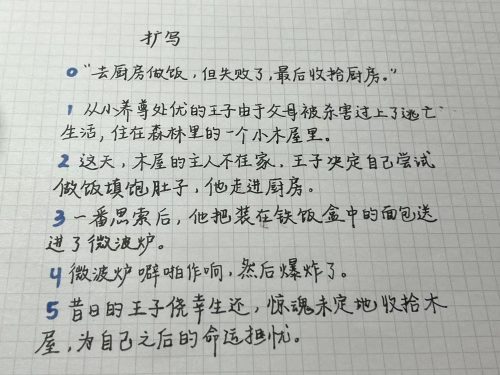 扩写
0 "去厨房做饭，但失败了，最后收拾厨房。"
1 从小养尊处优的王子由于父母被杀害过上了逃亡
生活，住在森林里的一个小木屋里。
2 这天，木屋的主人不在家，王子决定自己尝试
做饭填饱肚子，他走进厨房。
3 一番思索后，他把装在铁饭盒中的面包送
进了微波炉。
4 微波炉噼啪作响，然后爆炸了。
5 昔日的王子侥幸生还，惊魂未定地收拾木
屋，为自己之后的命运担忧。